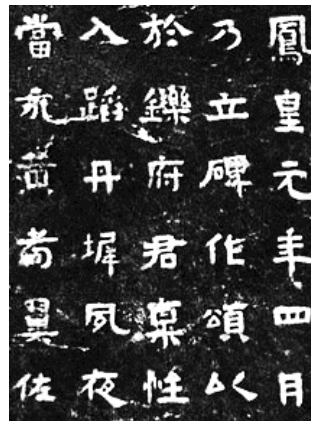 鳳皇元年四月
乃立碑作頌以
於鑠府君稟性
入蹈丹墀夙夜
當永黃耇翼佐